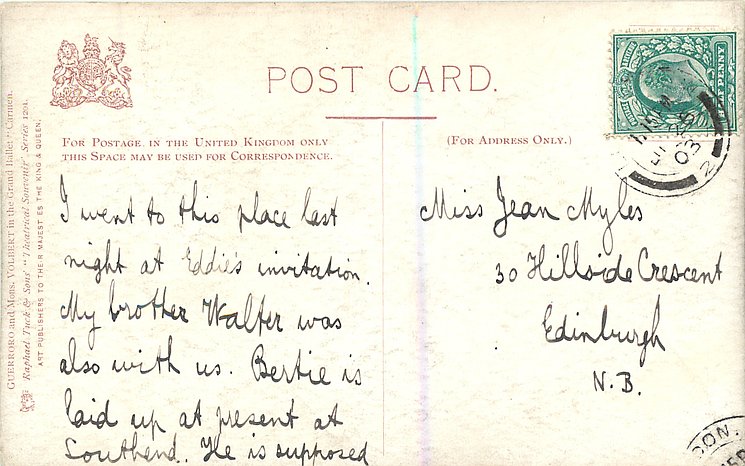 POST CARD.
FOR POSTAGE IN THE UNITED KINGDOM ONLY
THIS SPACE MAY BE USED FOR CORRESPONDENCE.
(FOR ADDRESS ONLY.)
GUERRORO and Mons. VOLBERT in the Grand Ballet "Carmen.
Raphael Tuck & Sons' "Theatrical Souvenir" Series 1201.
ART PUBLISHERS TO THEIR MAJESTIES THE KING & QUEEN.
I went to this place last
night at Eddie's invitation.
My brother Walter was
also with us. Bertie is
laid up at present at
Southend. He is supposed
Miss Jean Myles
30 Hillside Crescent
Edinburgh
N.B.
HALFPENNY
03
2
DON.